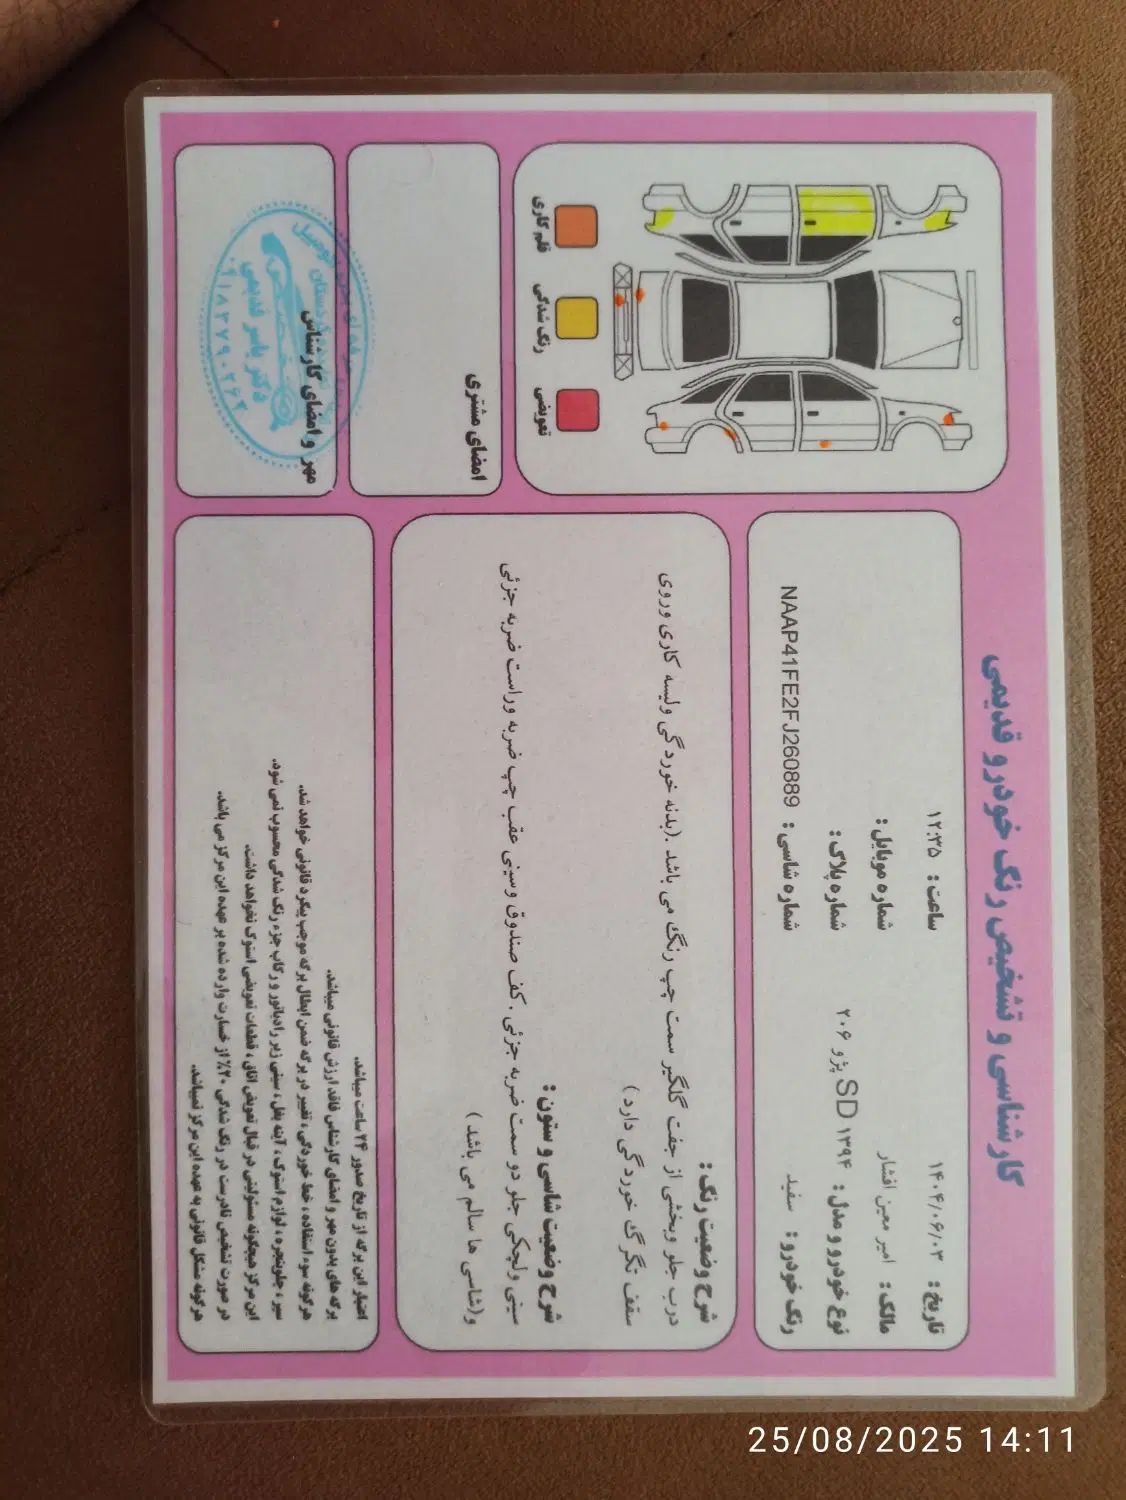 کارشناسی و تشخیص رنگ خودرو قدیمی
تاریخ : ۱۴۰۴/۰۶/۰۳ ساعت : ۱۲:۳۵
مالک : امیر معین افشار شماره موبایل :
نوع خودرو و مدل : پژو ۲۰۶ SD ۱۳۹۴ شماره پلاک :
رنگ خودرو : سفید شماره شاسی : NAAP41FE2FJ260889
شرح وضعیت رنگ :
درب جلو وبخشی از جفت گلگیر سمت چپ رنگ می باشد .(بدنه خوردگی ولیسه کاری وروی
سقف تگرگ خوردگی دارد )
شرح وضعیت شاسی و ستون :
سینی ولچکی جلو دو سمت ضربه جزئی .کف صندوق وسینی عقب چپ ضربه وراست ضربه جزئی
و(شاسی ها سالم می باشد )
اعتبار این برگه از تاریخ صدور ۲۴ ساعت میباشد.
برگه های بدون مهر و امضای کارشناس فاقد ارزش قانونی میباشد.
هرگونه سوء استفاده ، خط خوردگی ، تغییر در برگه ضمن ابطال برگه موجب پیگرد قانونی خواهد شد.
سپر ، جلوپنجره ، لوازم استوک ، آینه بغل ، سینی زیر رادیاتور و رکاب جزء رنگ شدگی محسوب نمی شود.
این مرکز هیچگونه مسئولیتی در قبال تعویض اتاق ، قطعات تعویضی استوک نخواهد داشت.
در صورت تشخیص نادرست در رنگ شدگی ۲۰٪ از خسارت وارده شده بر عهده این مرکز می باشد.
هرگونه مشکل قانونی به عهده این مرکز نمیباشد.
قلم کاری
رنگ شدگی
تعویضی
امضای مشتری
مهر و امضای کارشناس
دکتر یاسر قدیمی
25/08/2025 14:11